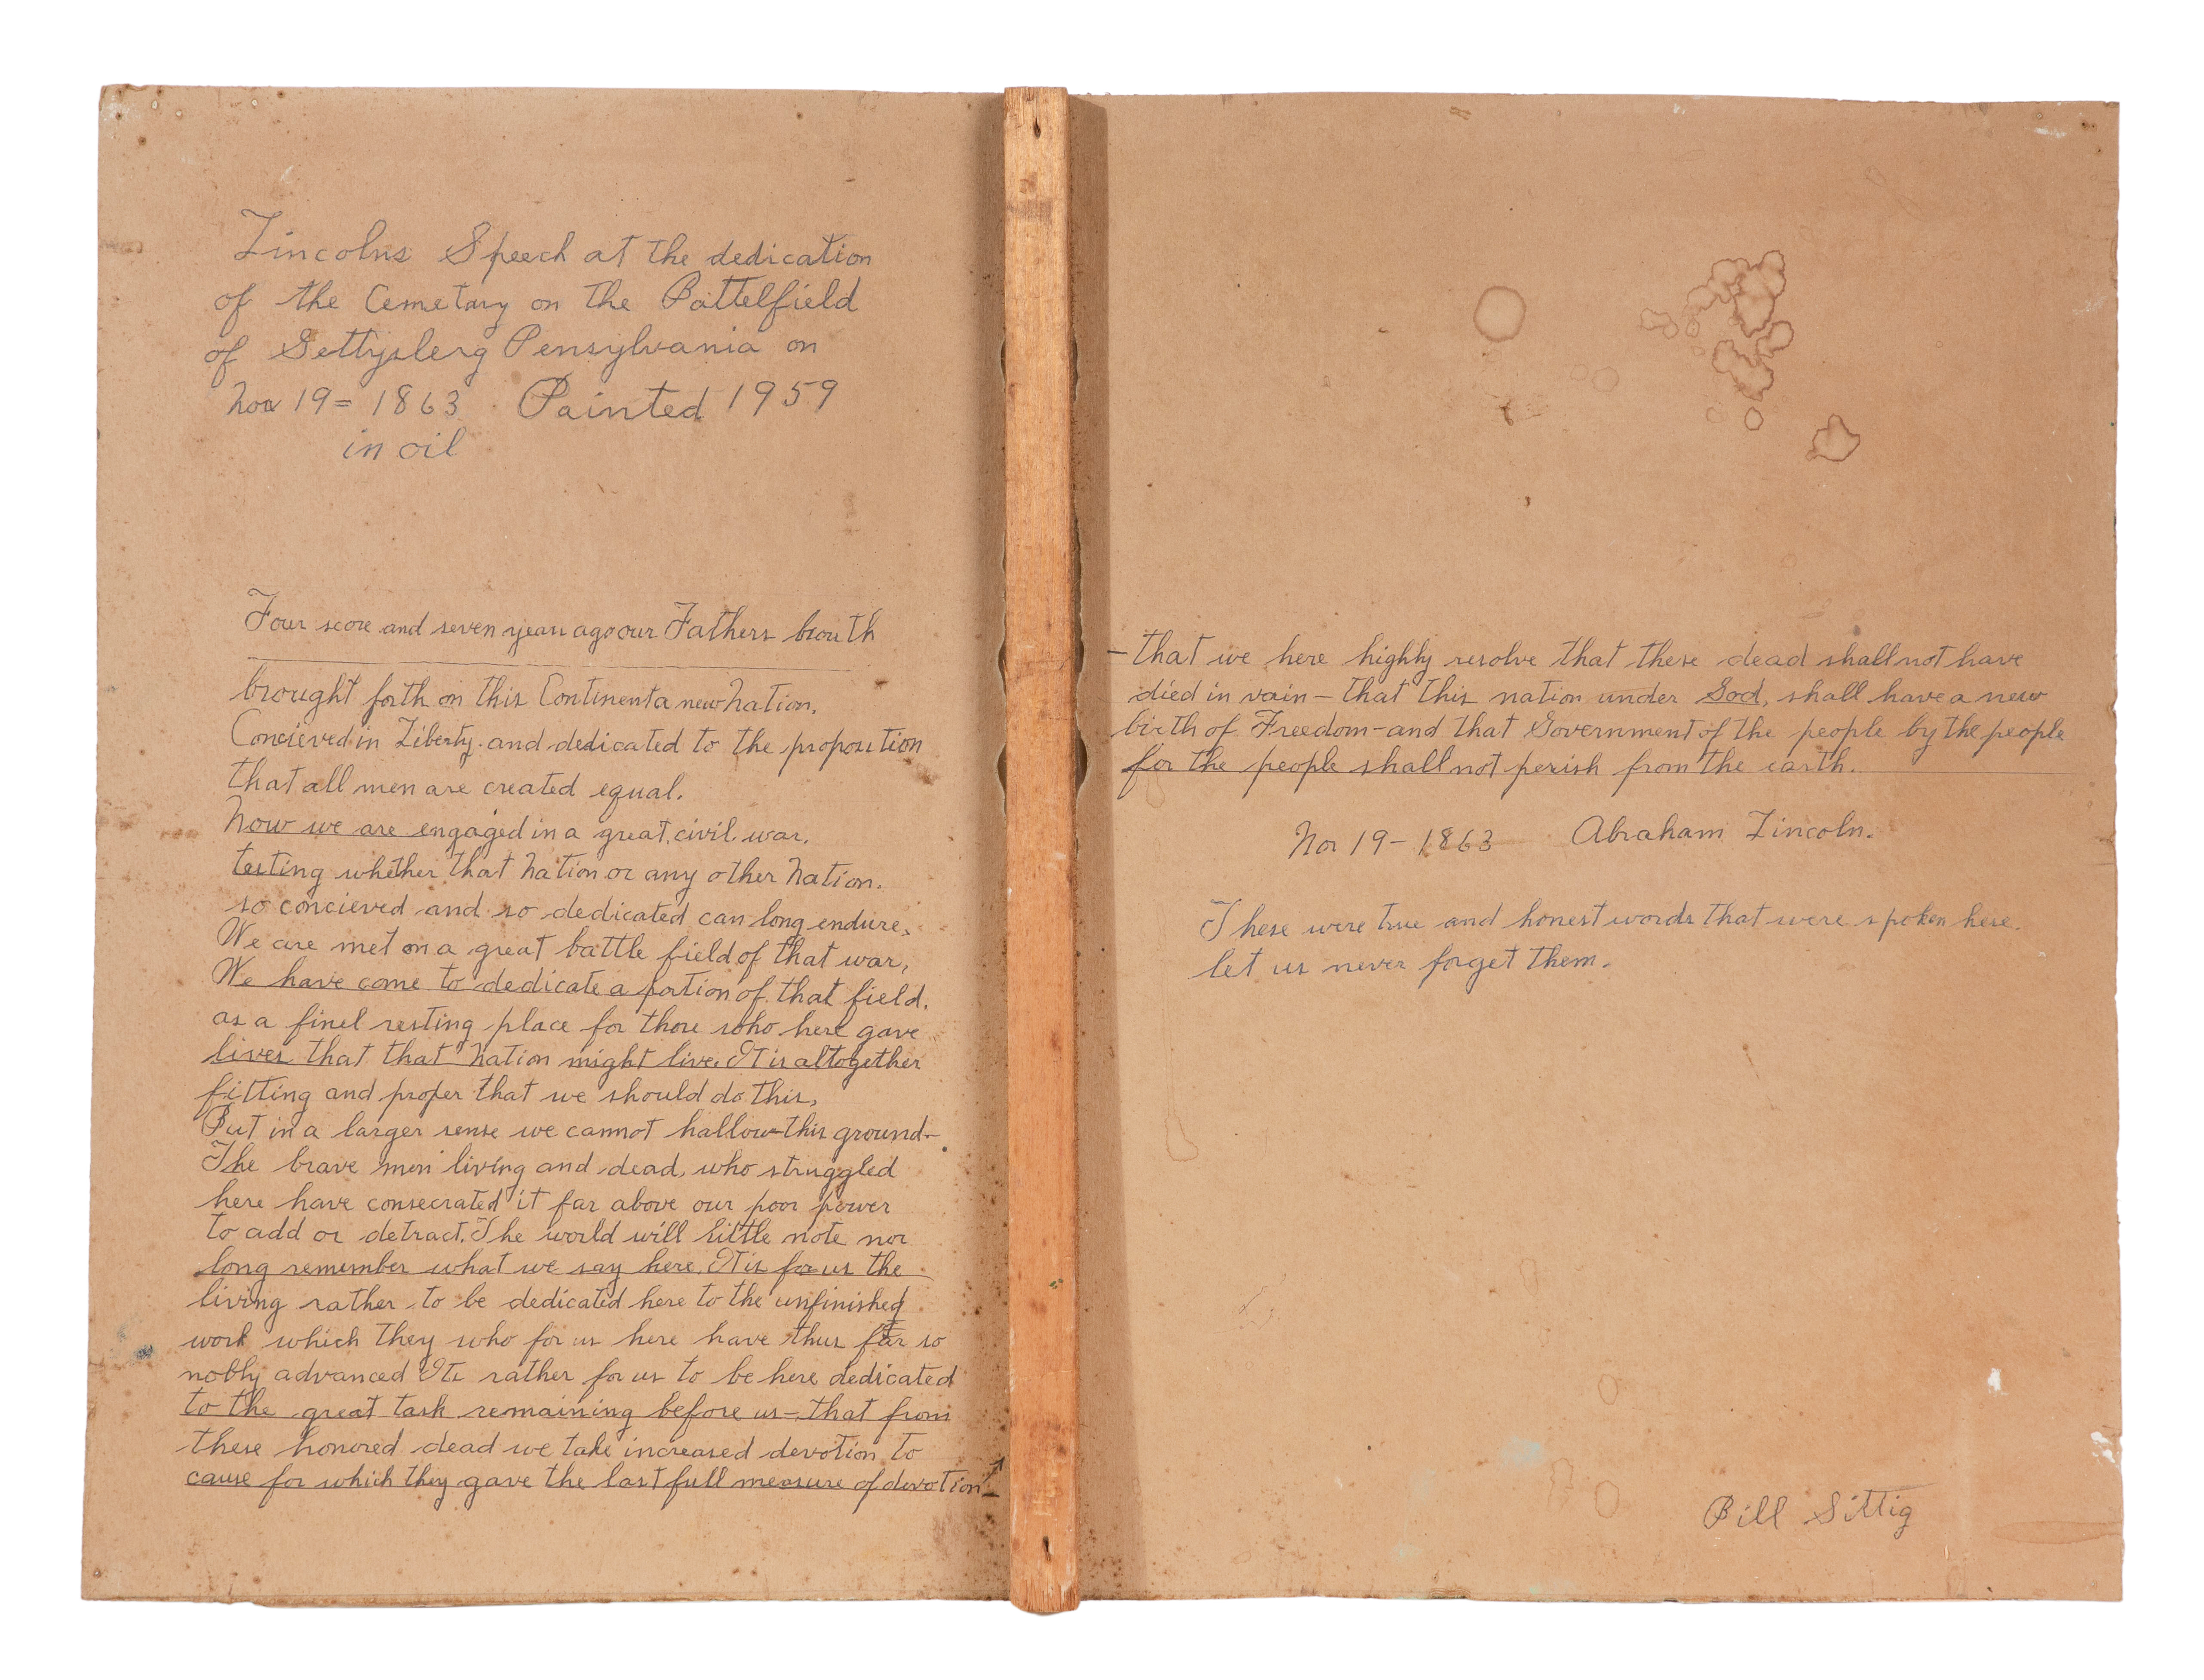 Lincolns Speech at the dedication
of the Cemetary on the Battelfield
of Gettysberg Pensylvania on
Nov 19 = 1863 Painted 1959
in oil
Four score and seven years ago our Fathers brouth
brought forth on this Continent a new Nation.
Concieved in Liberty. and dedicated to the proposition
that all men are created equal.
Now we are engaged in a great, civil. war.
testing whether that Nation or any other Nation.
so concieved and so dedicated can long endure.
We are met on a great battle field of that war,
We have come to dedicate a portion of that field.
as a finel resting place for those who here gave
lives that that Nation might live. It is altogether
fitting and proper that we should do this,
But in a larger sense we cannot hallow this ground-
The brave men living and dead, who struggled
here have consecrated it far above our poor power
to add or detract. The world will little note nor
long remember what we say here. It is for us the
living rather to be dedicated here to the unfinished
work which they who for us here have thus far so
nobly advanced Its rather for us to be here dedicated
to the great task remaining before us - that from
these honored dead we take increased devotion to
cause for which they gave the last full measure of devotion
- that we here highly resolve that these dead shall not have
died in vain - that this nation under God, shall have a new
birth of Freedom - and that Government of the people by the people
for the people shall not perish from the earth.
Nov 19 - 1863 Abraham Lincoln.
These were true and honest words that were spoken here.
let us never forget them.
Bill Sittig